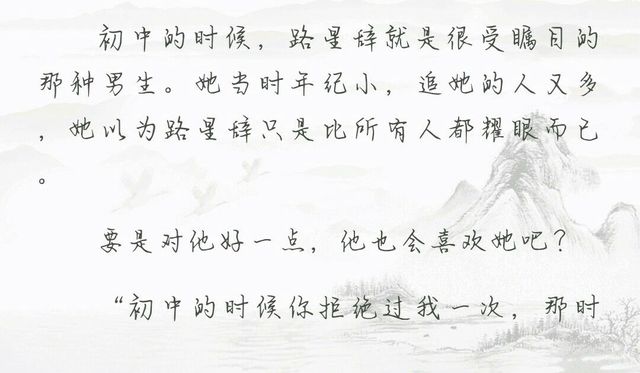 初中的时候，路星辞就是很受瞩目的
那种男生。她当时年纪小，追她的人又多
，她以为路星辞只是比所有人都耀眼而已
。
要是对他好一点，他也会喜欢她吧？
“初中的时候你拒绝过我一次，那时